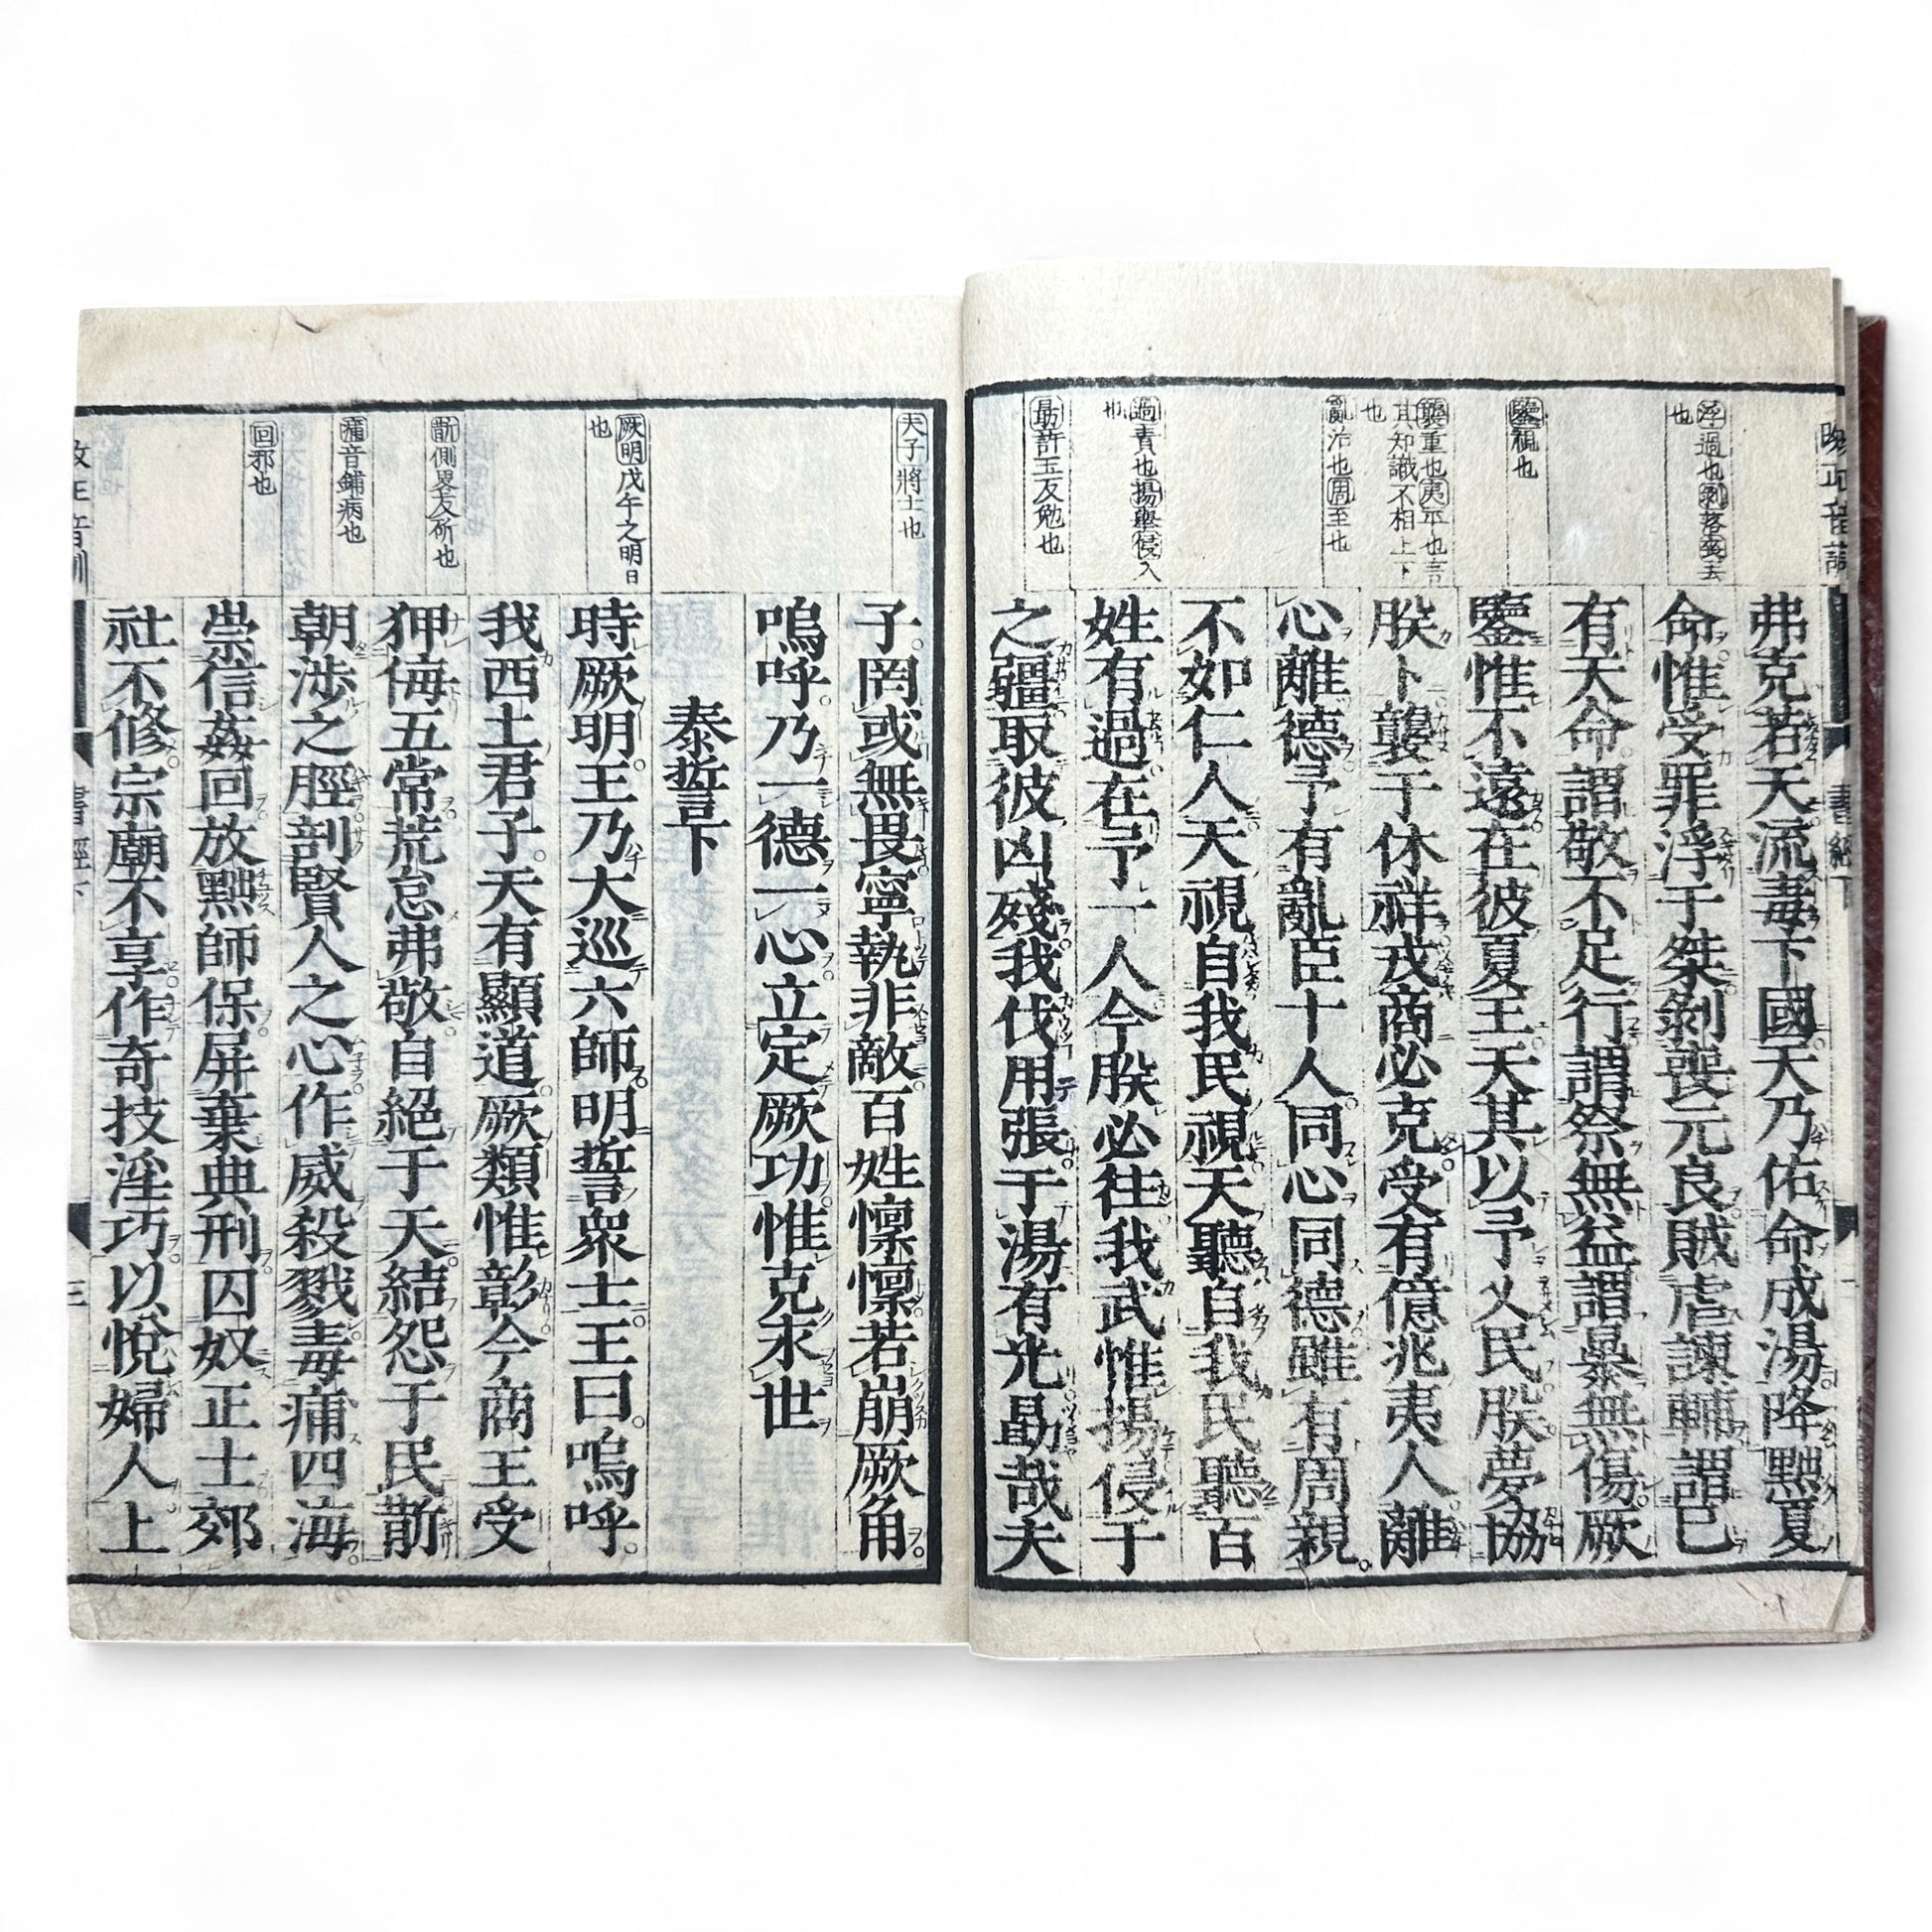 弗克若天流毒下國天乃佑命成湯降黜夏
命惟受罪浮于桀剝喪元良賊虐諫輔謂己
有天命謂敬不足行謂祭無益謂暴無傷厥
鑒惟不遠在彼夏王天其以予乂民朕夢協
朕卜襲于休祥戎商必克受有億兆夷人離
心離德予有亂臣十人同心同德雖有周親
不如仁人天視自我民視天聽自我民聽百
姓有過在予一人今朕必往我武惟揚侵于
之疆取彼凶殘我伐用張于湯有光勗哉夫
浮過也剝落喪去
也
鑒視也
襲重也夷平也言
其知識不相上下
也
亂治也周至也
過責也揚舉侵入
也
勗許玉反勉也
子罔或無畏寧執非敵百姓懍懍若崩厥角
嗚呼乃一德一心立定厥功惟克永世
泰誓下
時厥明王乃大巡六師明誓衆士王曰嗚呼
我西土君子天有顯道厥類惟彰今商王受
狎侮五常荒怠弗敬自絕于天結怨于民斮
朝涉之脛剖賢人之心作威殺戮毒痡四海
崇信姦回放黜師保屏棄典刑囚奴正士郊
社不修宗廟不享作奇技淫巧以悅婦人上
夫子將士也
厥明戊午之明日
也
斮側畧反斫也
痡音鋪病也
回邪也
書經下
三